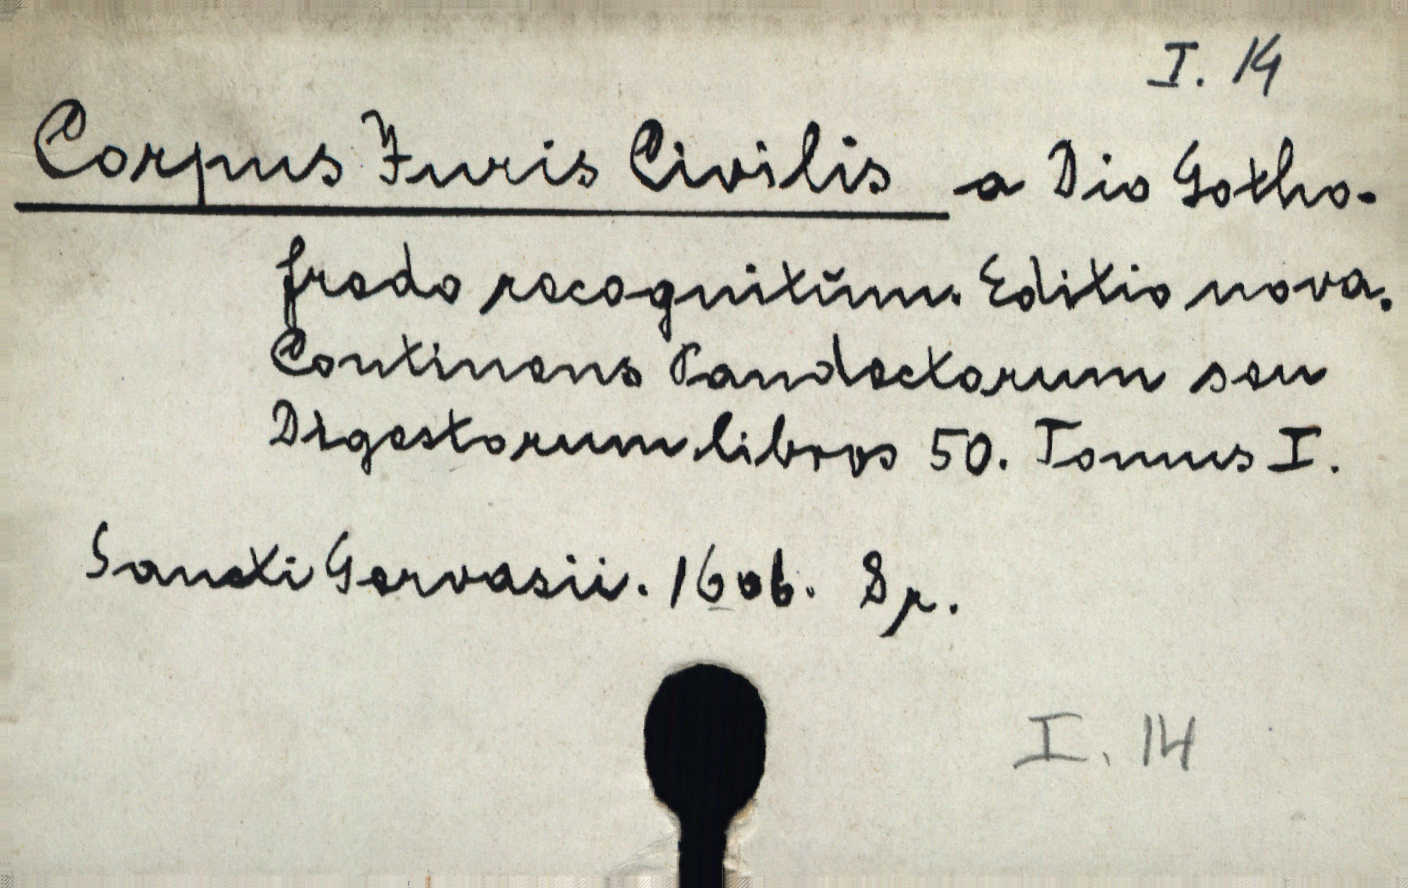 I. 14
Corpus Juris Civilis a Dio Gotho-
fredo recognitum. Editio nova.
Continens Pandectarum seu
Digestorum libros 50. Tomus I.
Sancti Gervasii. 1606. 8r.
I. 14